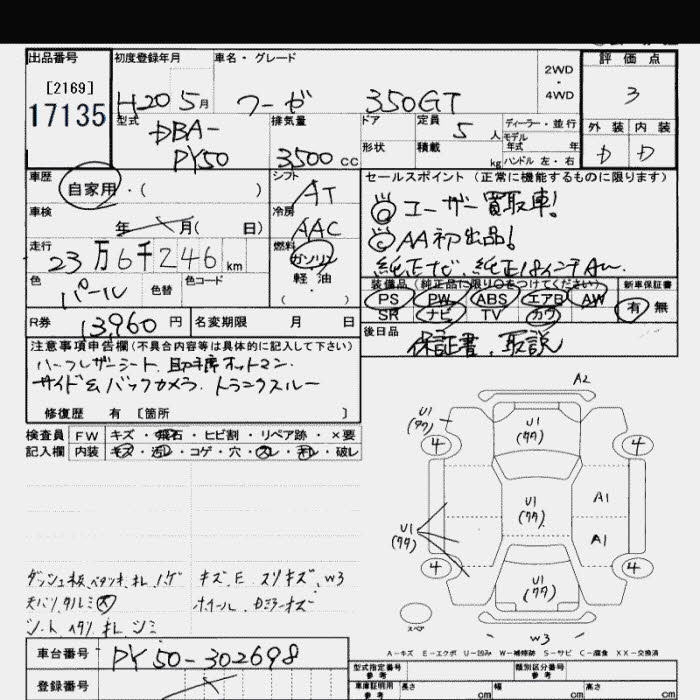 出品番号
[2169]
17135
初度登録年月
H20 5月
車名・グレード
フーガ 350GT
2WD
・
4WD
評価点
3
外装 内装
D D
型式
DBA-
PY50
排気量
3500 cc
ドア
形状
定員 5人
積載 kg
ディーラー・並行
モデル
年式 年
ハンドル 左・右
車歴
自家用・( )
車検
年 月( 日)
走行
23万6千246km
色
パール
色替
色コード
シフト
AT
冷房
AAC
燃料
ガソリン
軽油
( )
セールスポイント (正常に機能するものに限ります)
◎ユーザー買取車!
◎AA初出品!
純正ナビ、純正18インチAW
装備品(純正品に限り○をつけてください)
PS PW ABS エアB AW
SR ナビ TV カワ
新車保証書
有 無
後日品
保証書、取説
R券
13,960円
名変期限 月 日
注意事項申告欄(不具合内容等は具体的に記入して下さい)
ハーフレザーシート、助手席オットマン、
サイド&バックカメラ、トランクスルー
修復歴 有 [箇所 ]
検査員
記入欄
FW キズ・飛石・ヒビ割・リペア跡・×要
内装 キズ・汚レ・コゲ・穴・スレ・キレ・破レ
ダッシュ板、ベタツキ、キレ、ハゲ
天バリタルミ大
シート ヘタリ、キレ、シミ
キズ、E、スリキズ、W3
ホイール、Dミラーキズ
A2
U1
(タタ)
4
4
U1
(タタ)
U1
(タタ)
A1
A1
U1
(タタ)
4
4
U1
(タタ)
スペア
W3
A-キズ E-エクボ U-凹み W-補修跡 S-サビ C-腐食 XX-交換済
車台番号
PY50-302698
登録番号
型式指定番号
参考
類別区分番号
参考
車庫証明用
参考
長さ cm
幅 cm
高さ cm